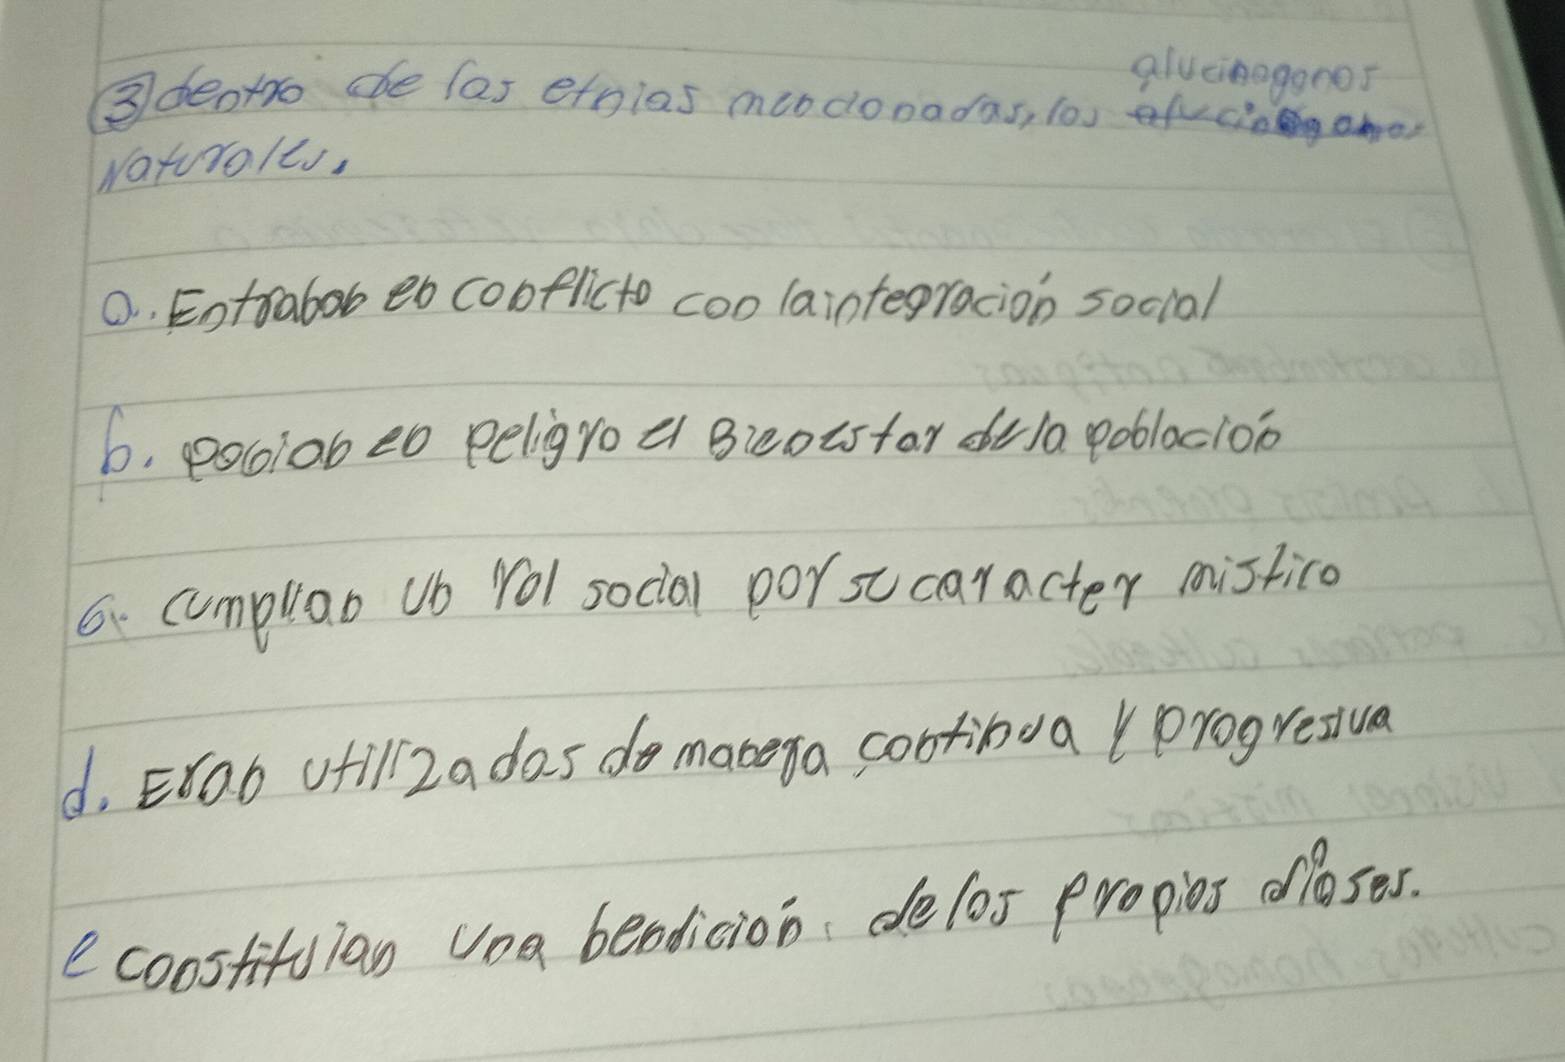 alucinogonos
③ dentro de las etnias mencionadas, los
Naturales.
a. Entraban en conflicto con la integración social
b. ponian en peligro el Bienestar de la población
c. cumplian un rol social por su caracter mistico
d. Eran utilizadas de manera continua y progresiva
e constituian una bendición. de los propios dioses.